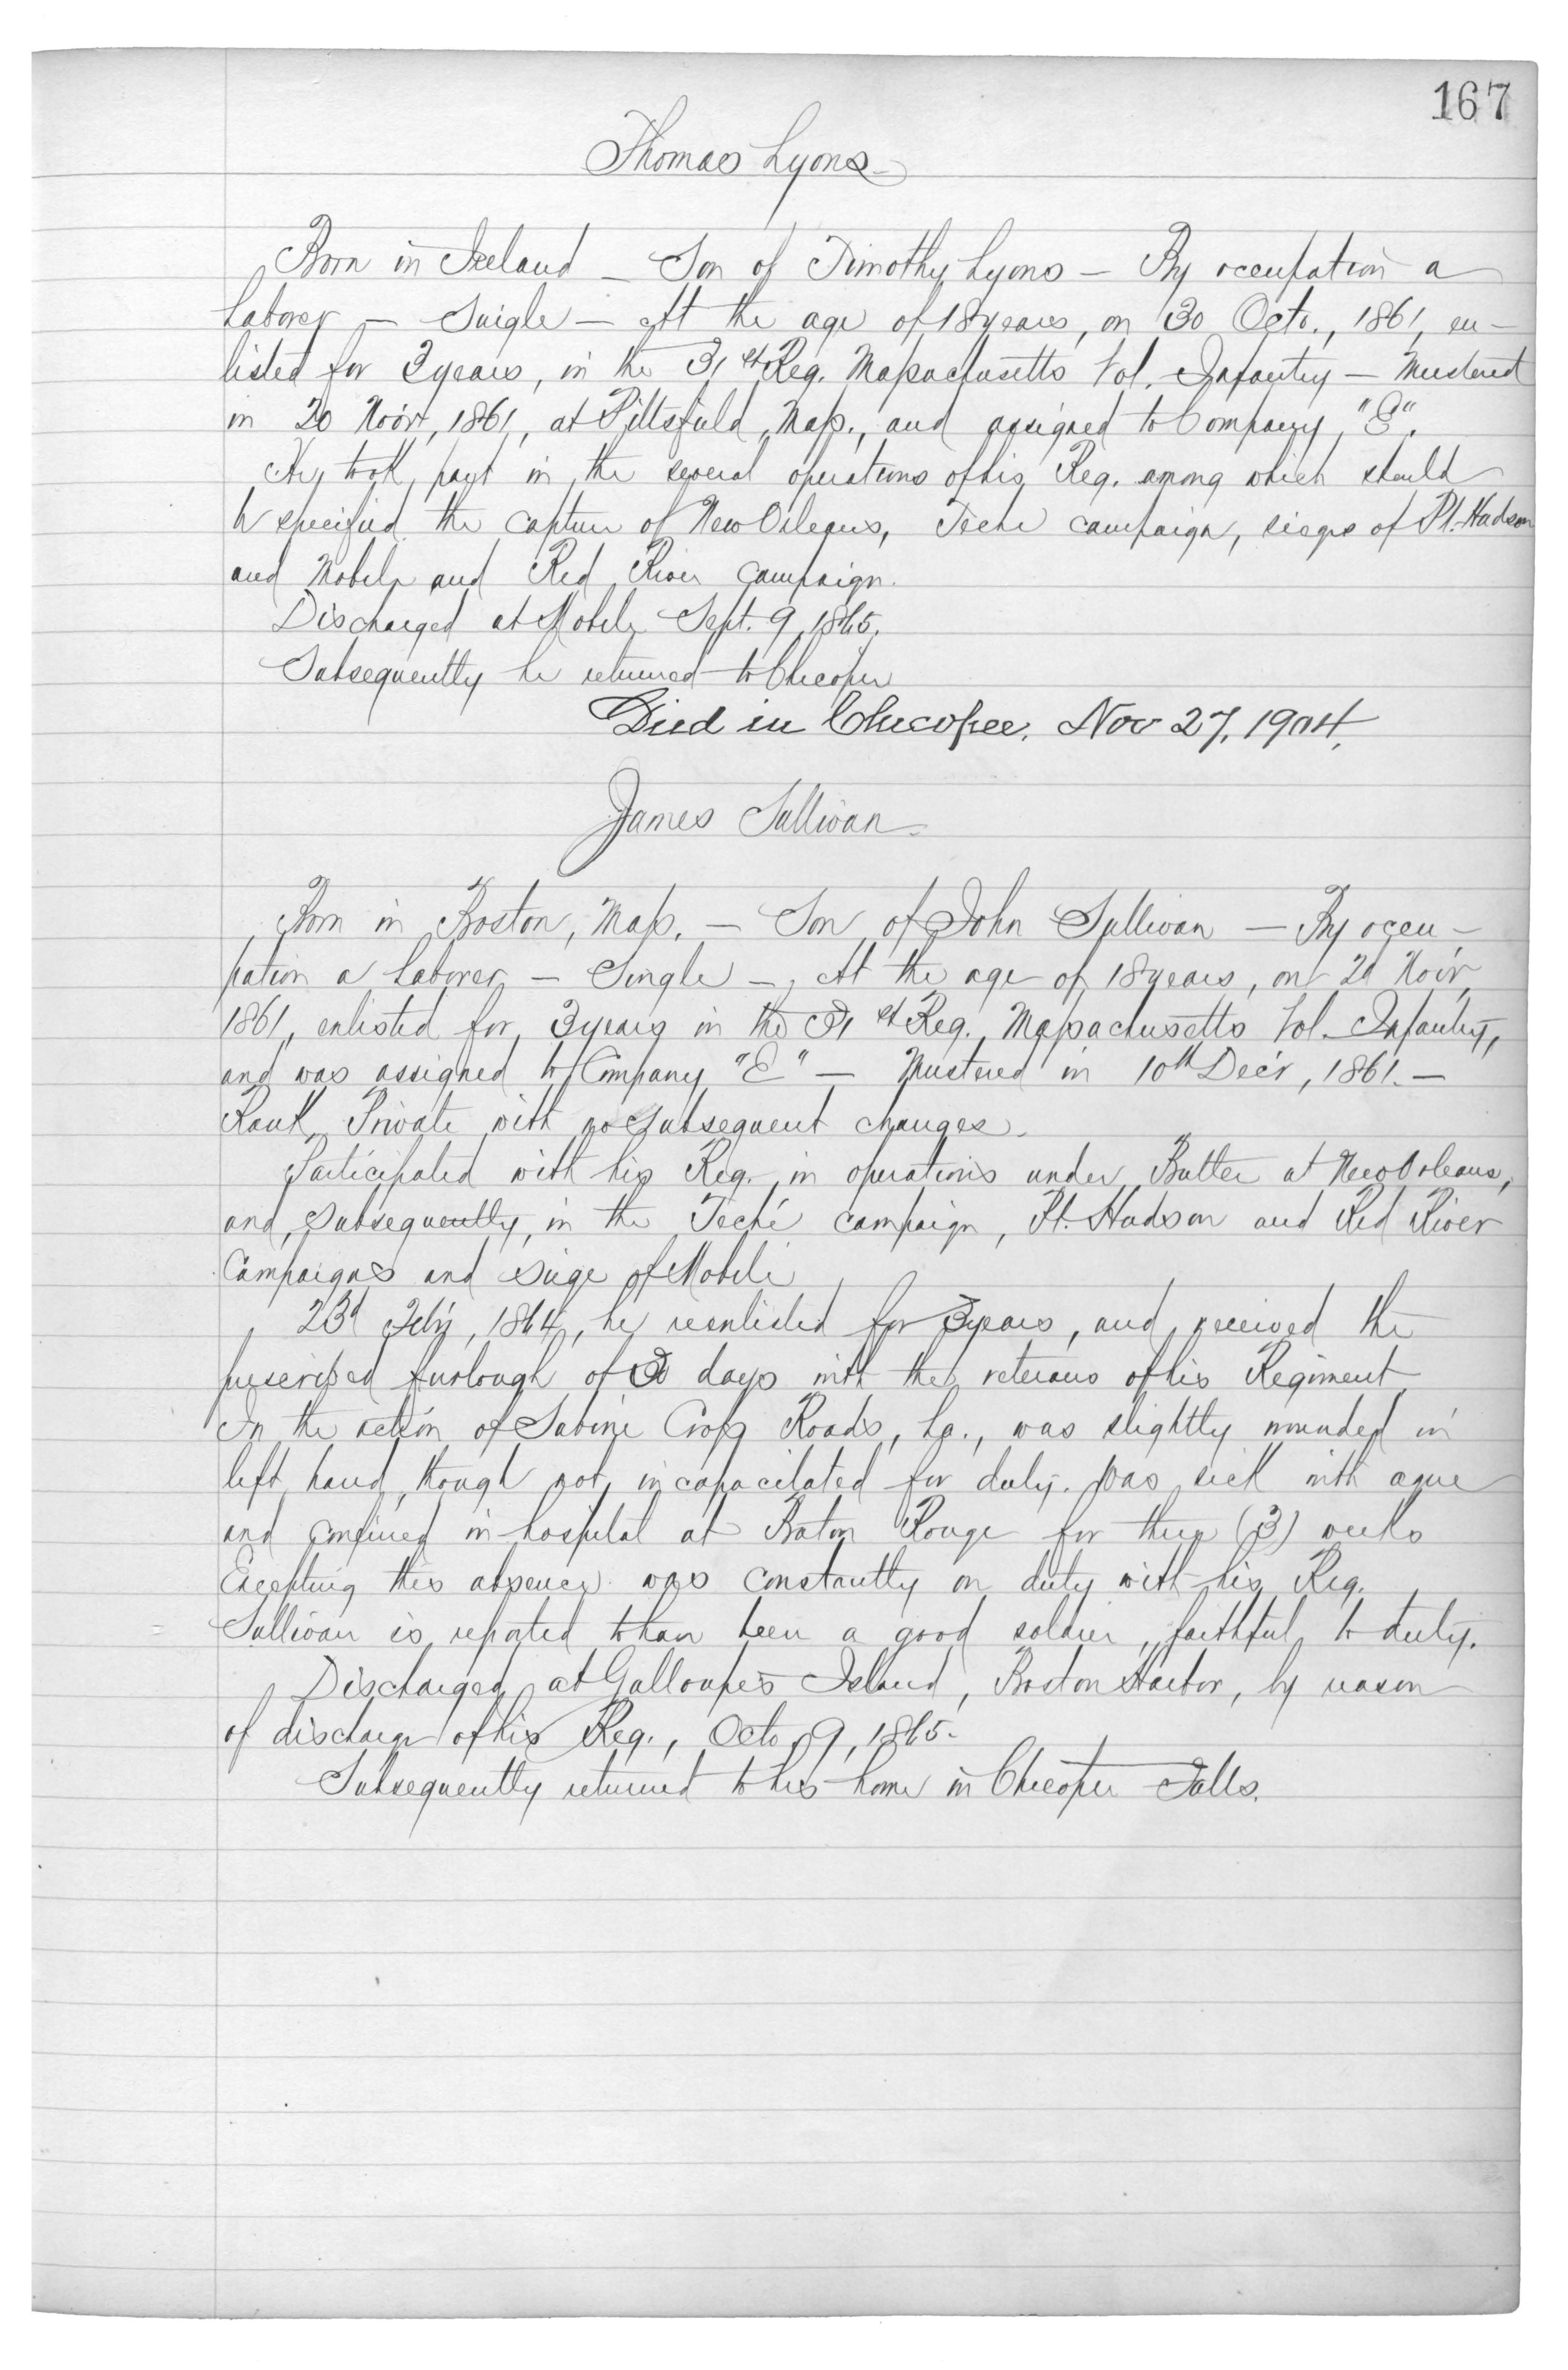 167
Thomas Lyons
Born in Ireland — Son of Timothy Lyons — By occupation a
Laborer — Single — At the age of 18 years, on 30 Octo., 1861, en-
listed for 3 years, in the 31st Reg. Massachusetts Vol. Infantry — Mustered
in 20 Nov'r, 1861, at Pittsfield, Mass., and assigned to Company "E".
He took part in the several operations of his Reg. among which should
be specified the capture of New Orleans, Teche campaign, sieges of Pt. Hudson
and Mobile and Red River campaign.
Discharged at Mobile Sept. 9, 1865.
Subsequently he returned to Chicopee
Died in Chicopee. Nov 27, 1904.
James Sullivan
Born in Boston, Mass. — Son of John Sullivan — By occu-
pation a Laborer — Single — At the age of 18 years, on Nov'r
1861, enlisted for 3 years in the 31st Reg. Massachusetts Vol. Infantry,
and was assigned to Company "E" — Mustered in 10th Dec'r, 1861. —
Rank Private with no subsequent changes.
Participated with his Reg. in operations under Butler at New Orleans,
and, subsequently, in the Teché campaign, Pt. Hudson and Red River
Campaigns and siege of Mobile
23d Feb'y, 1864, he reenlisted for 3 years, and received the
prescribed furlough of 30 days with the veterans of his Regiment
In the action of Sabine Cross Roads, La., was slightly wounded in
left hand, though not incapacitated for duty. Was sick with ague
and confined in hospital at Baton Rouge for three (3) weeks
Excepting this absence was constantly on duty with his Reg.
Sullivan is reported to have been a good soldier, faithful to duty.
Discharged at Galloupe's Island, Boston Harbor, by reason
of discharge of his Reg., Octo. 9, 1865.
Subsequently returned to his home in Chicopee Falls.